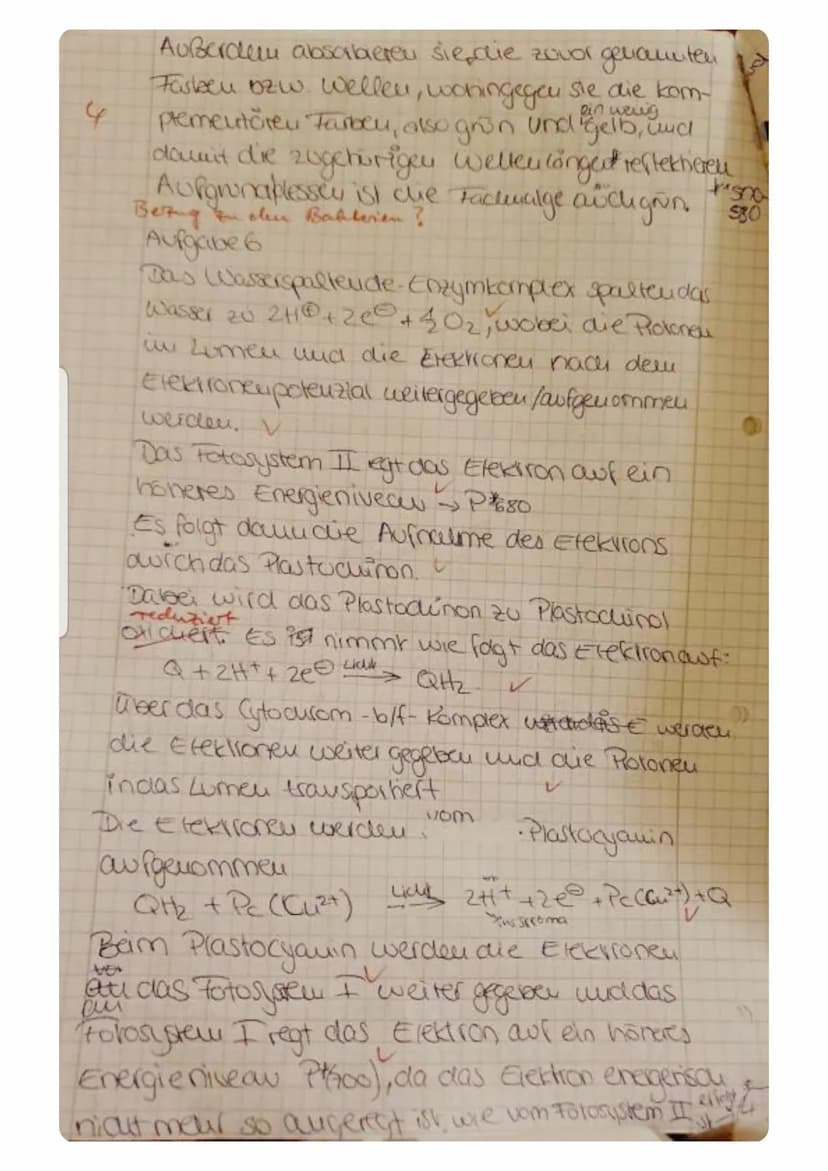 Außerdem absorbieren sie, die zuvor genannten
Farben bzw. Wellen, wohingegen sie die kom-
4
plementären Farben, also grün und ein wenig gelb, und
damit die zugehörigen Wellenlängen reflektieren
Aufgrunddessen ist die Fadenalge auch grün.
Bezug zu den Bakterien?
Aufgabe 6
Das Wasserspaltende-Enzymkomplex spaltet das
Wasser zu 2H⊕ + 2e⊖ + ½ O2, wobei die Protonen
im Lumen und die Elektronen nach dem
Elektronenpotenzial weitergegeben/aufgenommen
werden. ✓
Das Fotosystem II regt das Elektron auf ein
höheres Energieniveau → P*680
Es folgt dann die Aufnahme des Elektrons
durch das Plastochinon. ✓
Dabei wird das Plastochinon zu Plastochinol
reduziert
oxidiert. Es ist nimmt wie folgt das Elektron auf:
Q + 2H+ + 2e⊖ Licht → QH2. ✓
Über das Cytochrom-b/f-Komplex werden
die Elektronen weiter gegeben und die Protonen
in das Lumen transportiert ✓
Die Elektronen werden vom Plastocyanin
aufgenommen
QH2 + Pc(Cu2+) Licht → 2H+ + 2e⊖ + Pc(Cu2+) + Q
ins Stroma
Beim Plastocyanin werden die Elektronen
an das Fotosystem I weiter gegeben und das
Fotosystem I regt das Elektron auf ein höheres
Energieniveau P*700), da das Elektron energetisch
nicht mehr so angeregt ist, wie vom Fotosystem II